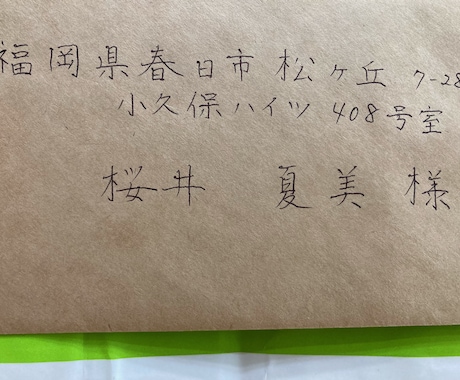 福岡県春日市松ヶ丘 7-28
小久保ハイツ 408号室
桜井 夏美 様